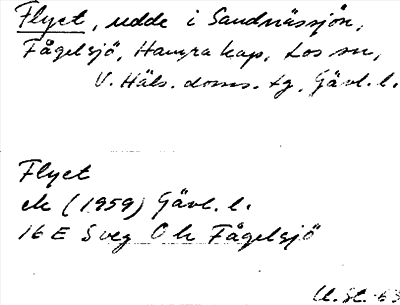 Flyet, udde i Sandnässjön,
Fågelsjö, Hamra kap., Los sn,
V. Häls. doms. tg, Gävl. l.
Flyet
ek (1959) Gävl. l.
16 E Sveg Ok Fågelsjö
U. St. 63